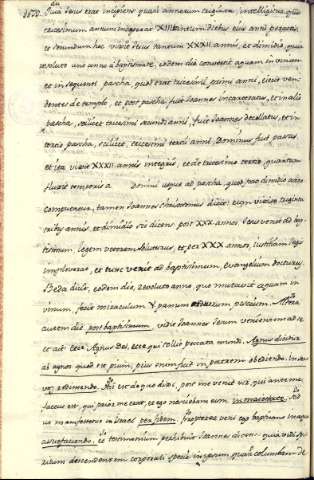 quia Jesus erat incipiens quasi annorum triginta, intelligitur quod
tricesimum annum inceperat XIII
et secundum hoc vixit Jesus tantum XXXII annis, et dimidio, quia
revoluto uno anno a baptismate, eadem die convertit aquam in vinum
et in sequenti pascha, quod erat tricesimi primi anni, eiecit ven-
dentes de templo, et post pascha fuit Joannes incarceratus, et in alio
pascha, scilicet tricesimi secundi anni, fuit Joannes decollatus, et in
tertio pascha, scilicet, tricesimi tertii anni, Dominus fuit passus
et ita vixit XXXII annis integris, et de tricesimo tertio, quantum
fluxit temporis a Domini usque ad pascha, quod pro dimidio anno
computatur, tamen Joannes Chrisostomus dicit eum vixisse triginta
tribus annis, et dimidio sic dicens post XXX annos Jesus venit ad bap-
tismum, legem veterem soluturus, et per XXX annos, iustitiam legis
impleverat, et tunc venit ad baptismum, evangelium docturus
Beda dicit, eadem die, revoluto anno, quo mutavit aquam in
vinum fecit miraculum V panum et duorum piscium. Altera
autem die post baptismum vidit Joannes Jesum venientem ad se
et ait ecce Agnus Dei, ecce qui tollit peccata mundi. Agnus dicitur
ab agnos quod est pium, pius enim fuit in patrem obediendo. In nos
nos redimendo. Hic est de quo dixi, post me venit vir, qui ante me
factus est, qui prior me erat, et ego nesciebam eum
manifestetur in Israel propterea veni ego baptisans in aqua
et testimonium perhibuit Joannes dicens quia vidi spi-
ritum descendentem corporali specie in ipsum quasi columbam de